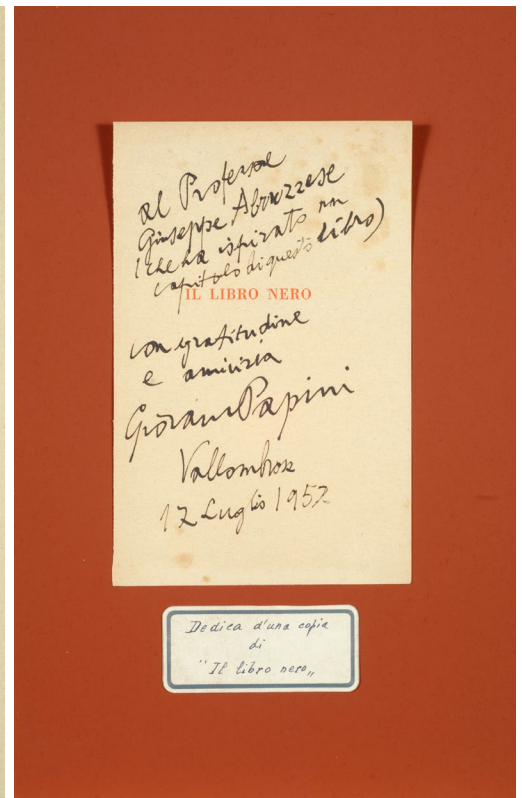 al Professore
Giuseppe Abruzzese
(che ha ispirato un
capitolo di questo libro)
IL LIBRO NERO
con gratitudine
e amicizia
Giovanni Papini
Vallombrosa
12 Luglio 1952
Dedica d'una copia
di
"Il libro nero„